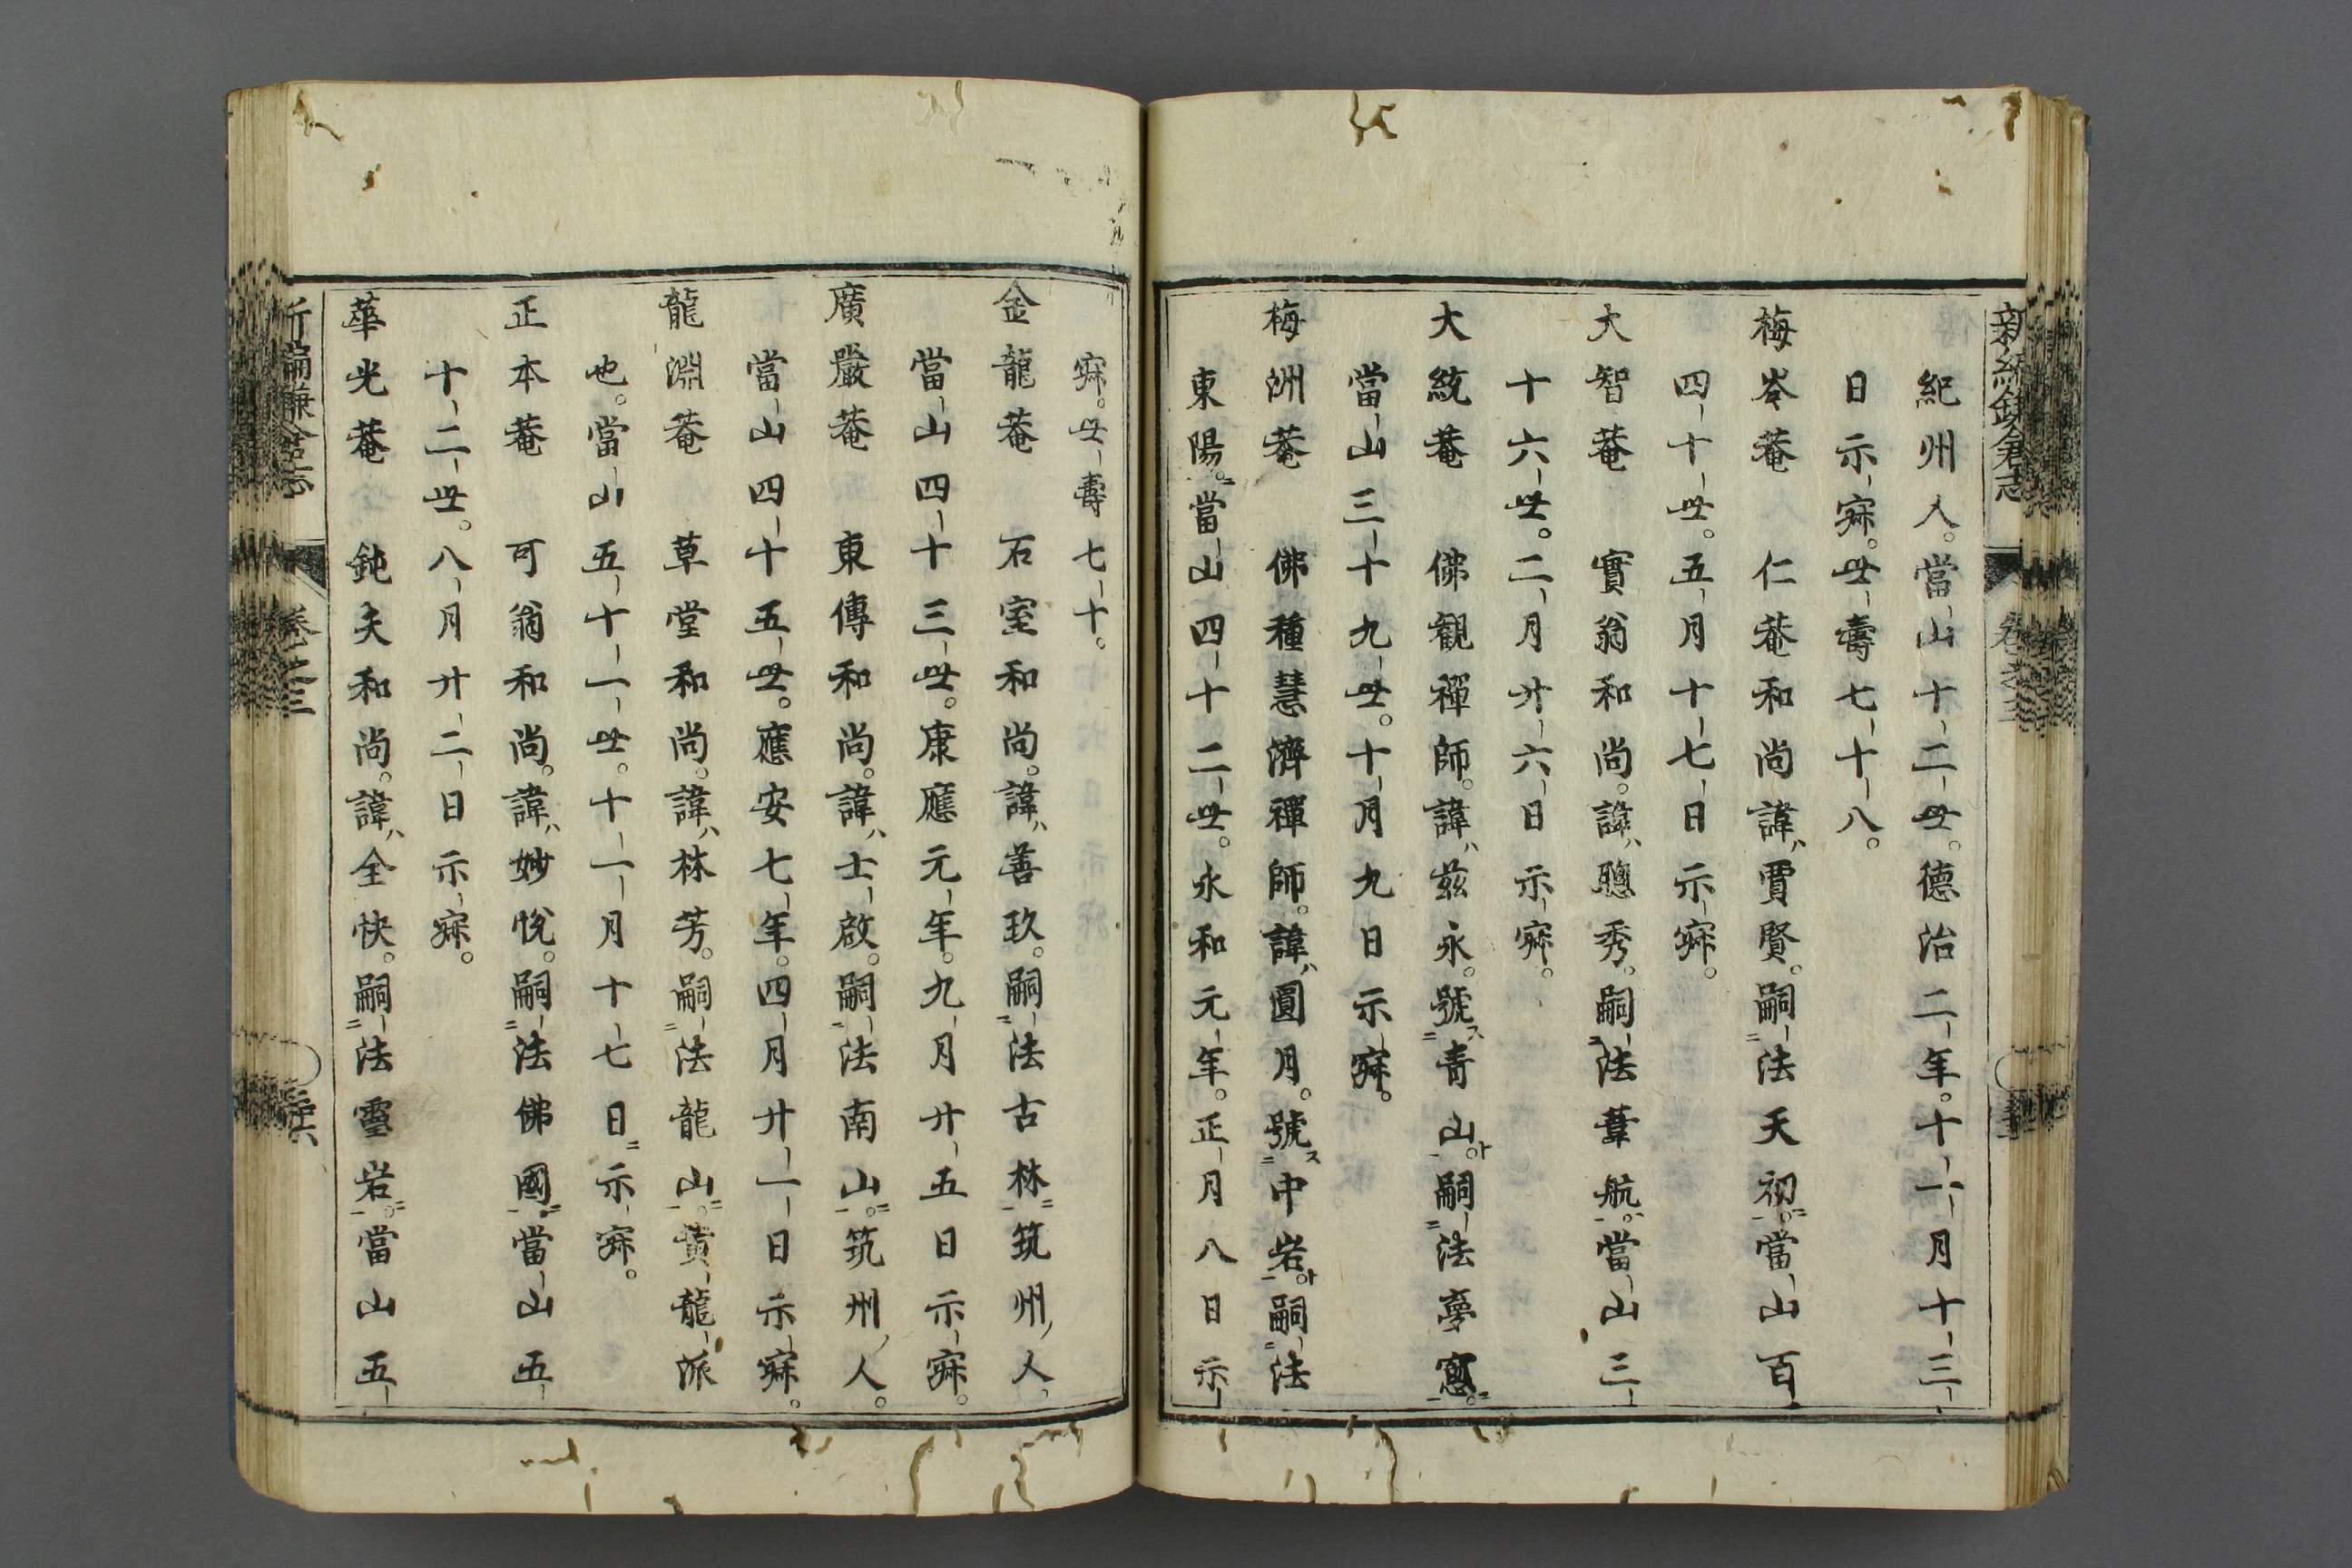 新編鎌倉志 卷之三
紀州人。當山十二世。德治二年。十一月十三
日示寂。世壽七十八。
梅岑菴 仁菴和尚諱賈賢。嗣法天初。當山百
四十世。五月十七日示寂。
大智菴 實翁和尚。諱聰秀。嗣法葦航。當山三
十六世。二月廿六日示寂。
大統菴 佛觀禪師。諱茲永。號ス青山ト。嗣法夢窻。
當山三十九世。十月九日示寂。
梅洲菴 佛種慧濟禪師。諱圓月。號ス中岩ト。嗣法
東陽。當山四十二世。永和元年。正月八日示
寂。世壽七十。
金龍菴 石室和尚。諱ハ善玖。嗣法古林。筑州ノ人。
當山四十三世。康應元年。九月廿五日示寂。
廣嚴菴 東傳和尚。諱ハ士啟。嗣法南山。筑州ノ人。
當山四十五世。應安七年。四月廿一日示寂。
龍淵菴 草堂和尚。諱ハ林芳。嗣法龍山。黄龍派
也。當山五十一世。十一月十七日示寂。
正本菴 可翁和尚。諱ハ妙悅。嗣法佛國。當山五
十二世。八月廿二日示寂。
華光菴 鈍夫和尚。諱ハ全快。嗣法靈岩。當山五
新編鎌倉志 卷之三